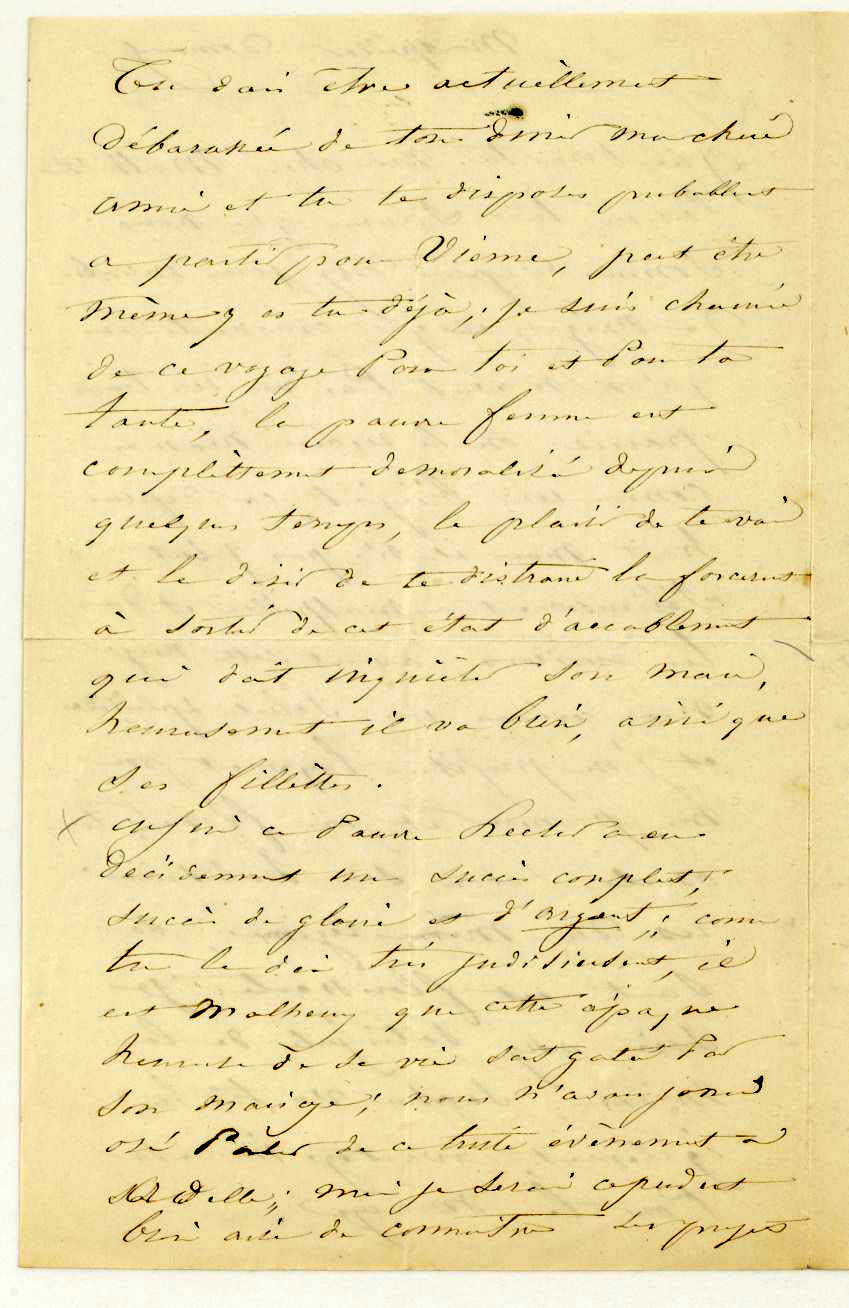 Tu dois être actuellement
débarassée de ton diner ma chère
amie et tu te disposes probablemt
a partir pour Vienne, peut être
même y es tu déjà, je suis charmée
de ce voyage Pour toi et Pour ta
tante, la pauvre femme est
complêttement demoralisé depuis
quelques temps, le plaisir de te voir
et le désir de te distraire la forcerent
à sortir de cet état d'accablement
qui doit inquiéter son mari,
heureusement il va bien, ainsi que
ses fillettes.
enfin ce Pauvre Hector a eu
décidemment un succès complet,
succès de gloire et d'argent; comme
tu le dis très judisieusemt, il
est Malheureux que cette époque
heureuse de sa vie soit gatée Par
son mariage; nous n'avons jamais
osé Parler de ce triste évènement a
Adèle; mais je serai cependant
bien aise de connaitre les projets